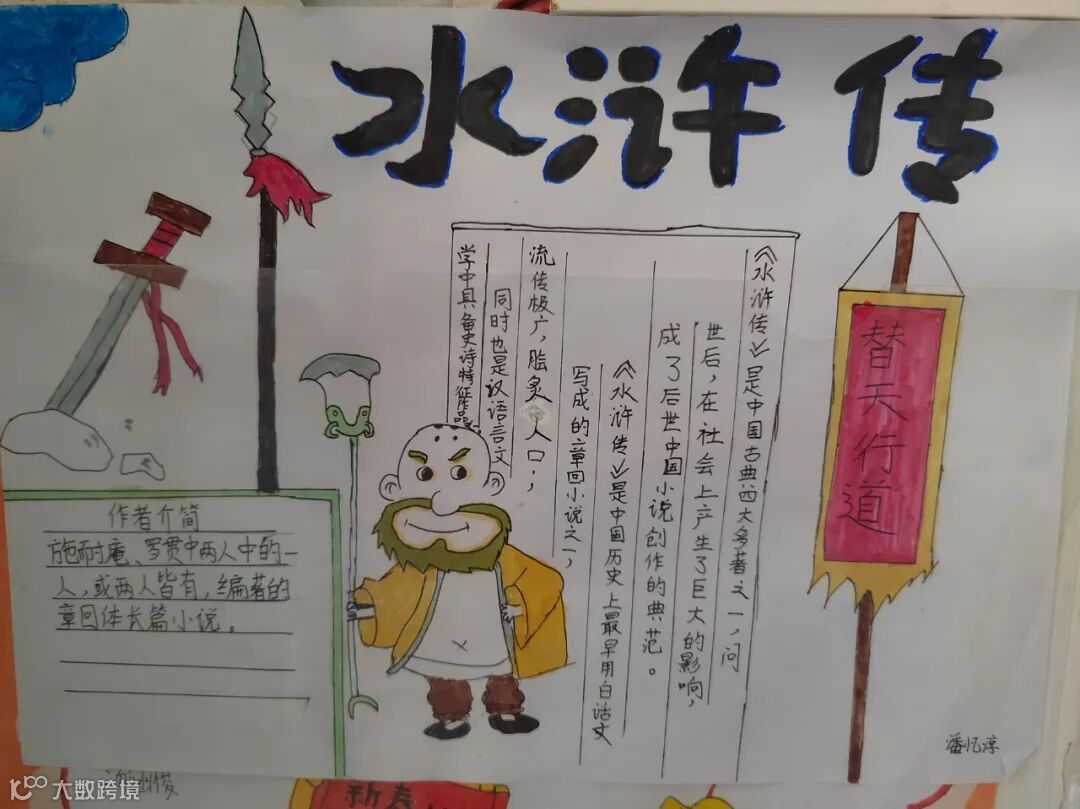 水浒传
《水浒传》是中国古典四大多著之一,问
世后,在社会上产生了巨大的影响,
成了后世中国小说创作的典范。
《水浒传》是中国历史上最早用白话文
写成的章回小说之一,
流传极广,脍炙人口;
同时也是汉语言文
学中具备史诗特征作品
替天行道
作者介简
施耐庵、罗贯中两人中的一
人,或两人皆有,编著的
章回体长篇小说。
潘忆淳
新春
大数跨境